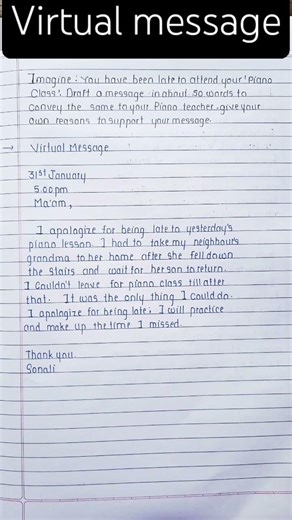 Virtual message
Imagine:- You have been late to attend your 'Piano
Class'. Draft a message in about 50 words to
convey the same to your Piano teacher. give your
own reasons to support your message.
→ Virtual Message
31st January
5.00pm
Ma'am,
I apologize for being late to yesterday's
piano lesson. I had to take my neighbour's
grandma to her home after she fell down
the stairs and wait for her son to return.
I couldn't leave for piano class till after
that. It was the only thing I could do.
I apologize for being late; I will practice
and make up the time I missed.
Thank you.
Sonali